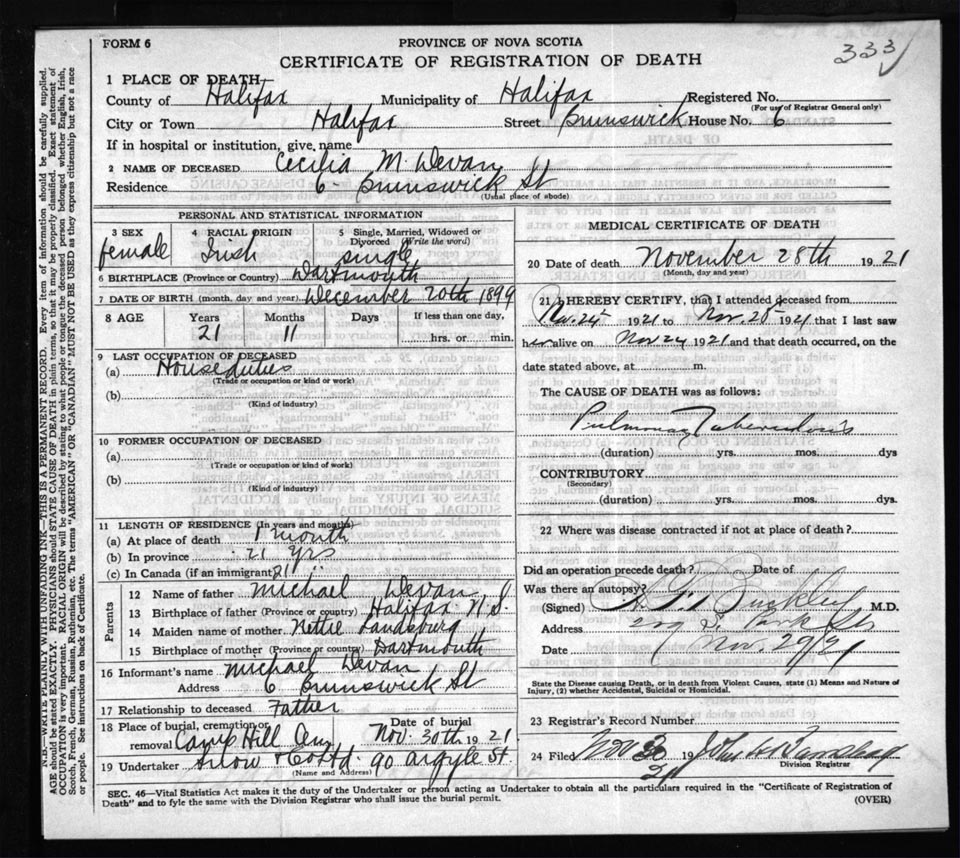 333
FORM 6
PROVINCE OF NOVA SCOTIA
CERTIFICATE OF REGISTRATION OF DEATH
1 PLACE OF DEATH
County of Halifax Municipality of Halifax Registered No.
(For use of Registrar General only)
City or Town Halifax Street Brunswick House No. 6
If in hospital or institution, give name
2 NAME OF DECEASED Cecilia M. Devan
Residence 6 Brunswick St
(Usual place of abode)
PERSONAL AND STATISTICAL INFORMATION
3 SEX female
4 RACIAL ORIGIN Irish
5 Single, Married, Widowed or Divorced (Write the word) single
6 BIRTHPLACE (Province or Country) Dartmouth
7 DATE OF BIRTH (month, day and year) December 20th 1899
8 AGE Years Months Days If less than one day,
21 11 hrs. or min.
9 LAST OCCUPATION OF DECEASED
(a) House duties
(Trade or occupation or kind or work)
(b)
(Kind of industry)
10 FORMER OCCUPATION OF DECEASED
(a)
(Trade or occupation or kind or work)
(b)
(Kind of industry)
11 LENGTH OF RESIDENCE (In years and months)
(a) At place of death 1 month
(b) In province 21 yrs
(c) In Canada (if an immigrant) 21 "
Parents
12 Name of father Michael Devan
13 Birthplace of father (Province or country) Halifax N.S.
14 Maiden name of mother Nettie
15 Birthplace of mother (Province or country) Dartmouth
16 Informant's name Michael Devan
Address 6 Brunswick St
17 Relationship to deceased Father
18 Place of burial, cremation or removal Camp Hill Date of burial Nov. 30th 1921
19 Undertaker Snow & Co Ltd. 90 Argyle St.
(Name and Address)
MEDICAL CERTIFICATE OF DEATH
20 Date of death November 28th 1921
(Month, day and year)
21 I HEREBY CERTIFY, that I attended deceased from
Nov. 25 1921 to Nov. 28 1921 that I last saw
her alive on Nov 24 1921 and that death occurred, on the
date stated above, at m.
The CAUSE OF DEATH was as follows:
Pulmonary Tuberculosis
(duration) yrs. mos. dys
CONTRIBUTORY
(Secondary)
(duration) yrs. mos. dys.
22 Where was disease contracted if not at place of death?
Did an operation precede death? Date of
Was there an autopsy?
(Signed) Buckley M.D.
Address S. Park St
Date Nov. 29/21
State the Disease causing Death, or in death from Violent Causes, state (1) Means and Nature of
Injury, (2) whether Accidental, Suicidal or Homicidal.
23 Registrar's Record Number
24 Filed Nov 30 19 21 John
Division Registrar
SEC. 46—Vital Statistics Act makes it the duty of the Undertaker or person acting as Undertaker to obtain all the particulars required in the "Certificate of Registration of
Death" and to fyle the same with the Division Registrar who shall issue the burial permit.
(OVER)
N.B.—WRITE PLAINLY WITH UNFADING INK—THIS IS A PERMANENT RECORD. Every item of information should be carefully supplied.
AGE should be stated EXACTLY. PHYSICIANS should STATE CAUSE OF DEATH in plain terms, so that it may be properly classified. Exact statement of
OCCUPATION is very important. RACIAL ORIGIN will be described by stating to what people or tongue the deceased person belonged whether English, Irish,
Scotch, French, German, Russian, Ruthenian, etc. The terms "AMERICAN" OR "CANADIAN" MUST NOT BE USED as they express citizenship but not a race
or people. See instructions on back of Certificate.